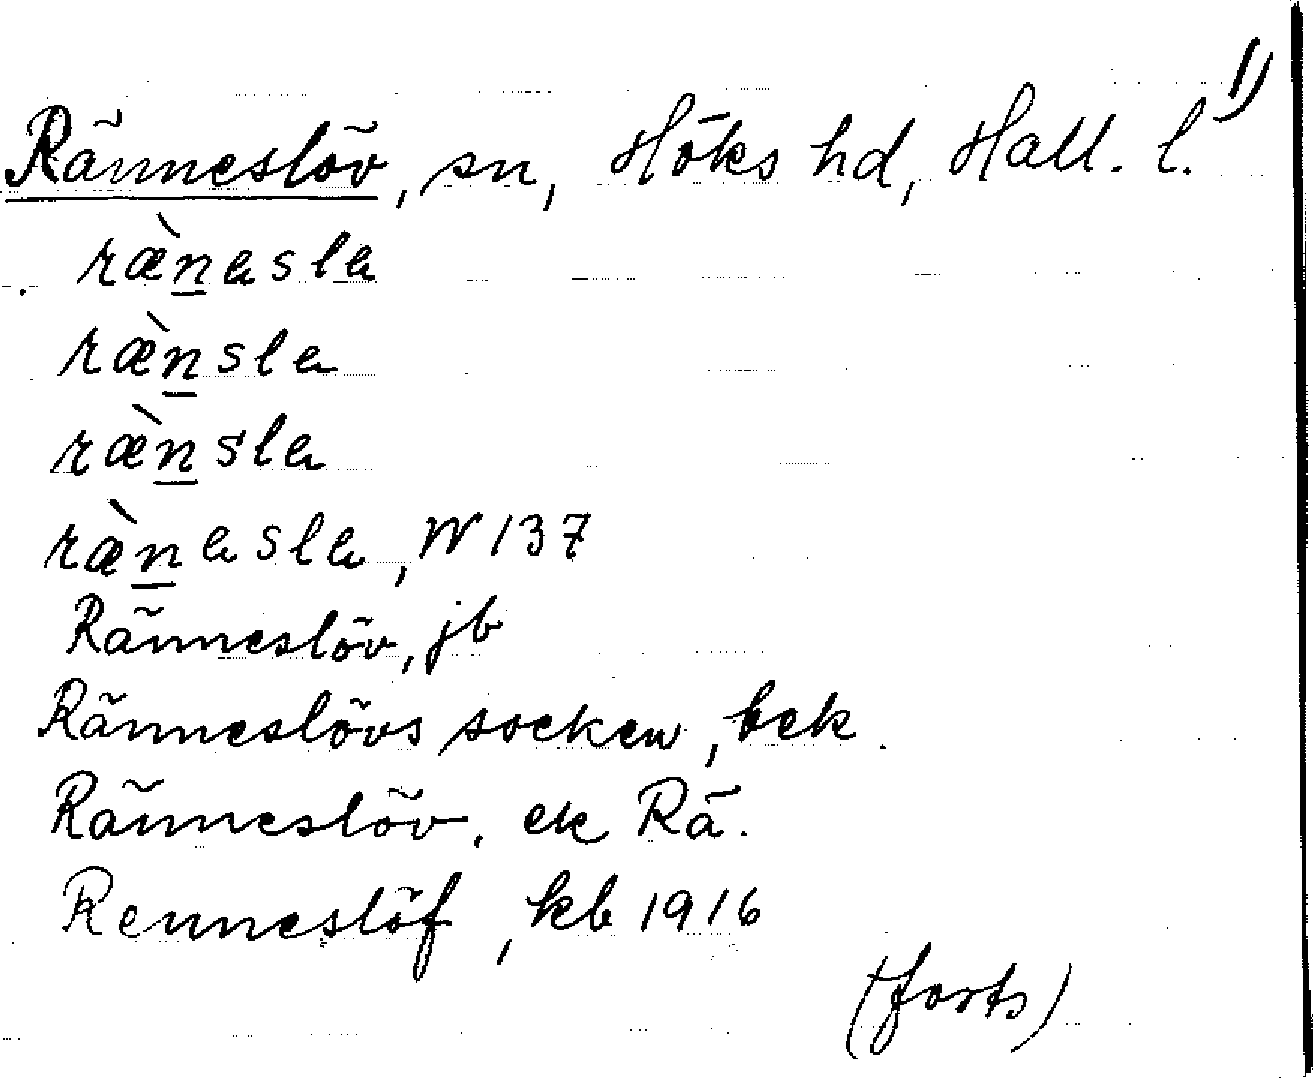 Ränneslöv, sn, Höks hd, Hall. l. 1)
ræ̀n̲əslə
ræ̀n̲slə
ræ̀n̲slə
ræ̀n̲əslə, W 137
Ränneslöv, jb
Ränneslövs socken, bek
Ränneslöv, ek Rä.
Renneslöf, kb 1916
(forts)